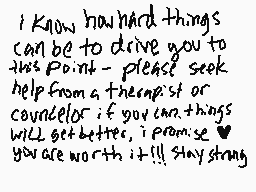 i know how hard things
can be to drive you to
this point - please seek
help from a therapist or
councelor if you can. things
will get better, i promise ♥
you are worth it!!! stay strong